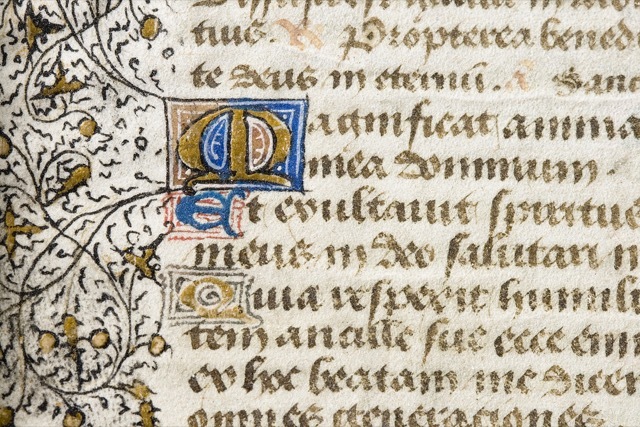 tuis. V Propterea bened
te deus in eternū. A Sanc
Magnificat anima
mea dominum.
Et exultavit spiritus
meus in deo salutari m
Quia respexit humili
tem ancille sue ecce enim
ex hoc beatam me dicen
omnes generaciones